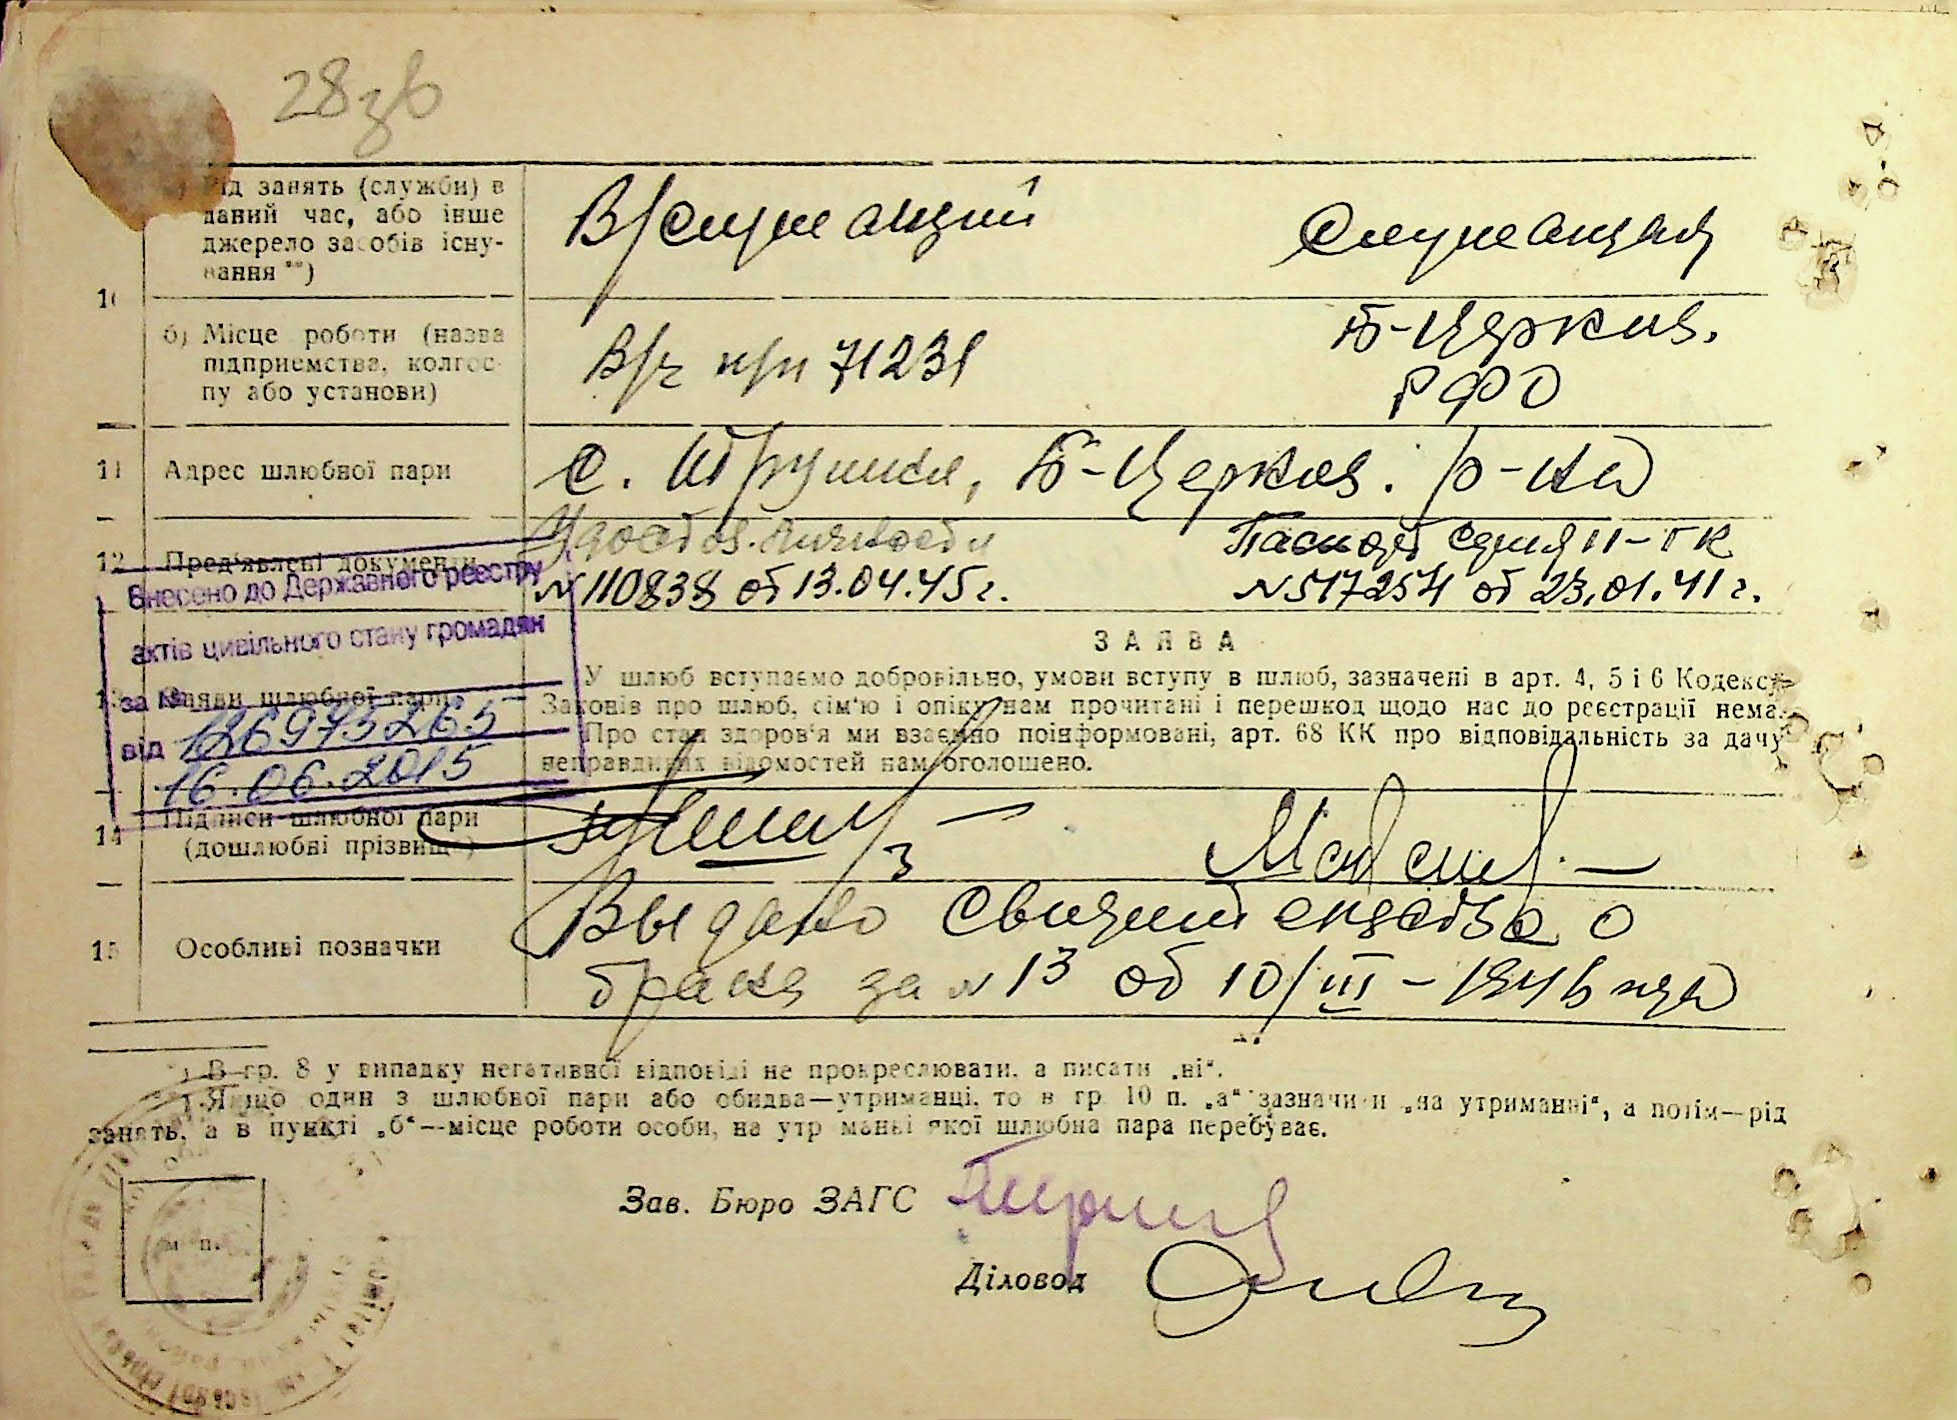 28зв
Рід занять (служби) в
даний час, або інше
джерело засобів існу-
вання **)
В/служащий
Служащая
10
б) Місце роботи (назва
підприємства, колгос-
пу або установи)
В/ч п/п 71231
Б-Церков.
РФО
11
Адрес шлюбної пари
с. Трушки, Б-Церков. р-на
12
Пред'явлені документи
Удостов. личности
№ 110838 от 13.04.45 г.
Паспорт серия II-ГК
№ 517254 от 23.01.41 г.
Внесено до Державного реєстру
актів цивільного стану громадян
за №
126975265
від
16.06.2015
13
Заяви шлюбної пари
ЗАЯВА
У шлюб вступаємо добровільно, умови вступу в шлюб, зазначені в арт. 4, 5 і 6 Кодексу
Законів про шлюб, сім'ю і опіку нам прочитані і перешкод щодо нас до реєстрації нема.
Про стан здоров'я ми взаємно поінформовані, арт. 68 КК про відповідальність за дачу
неправдивих відомостей нам оголошено.
14
Підписи шлюбної пари
(дошлюбні прізвища)
15
Особливі позначки
Выдано свидетельство о
браке за № 13 от 10/III-1946 года
*) В гр. 8 у випадку негативної відповіді не прокреслювати, а писати „ні“.
**) Якщо один з шлюбної пари або обидва—утриманці, то в гр 10 п. „а“ зазначити „на утриманні“, а потім—рід
занять, а в пункті „б“—місце роботи особи, на утриманні якої шлюбна пара перебуває.
м п.
Зав. Бюро ЗАГС
Діловод